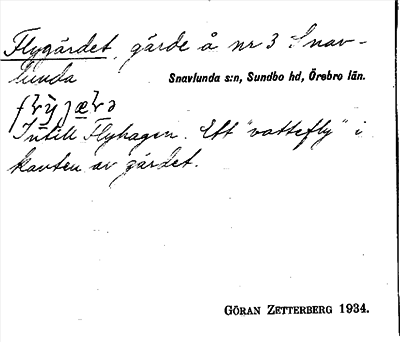 Flygärdet, gärde å nr 3 Snav-
lunda Snavlunda s:n, Sundbo hd, Örebro län.
Intill Flyhagen. Ett "vattefly" i
kanten av gärdet.
GÖRAN ZETTERBERG 1934.